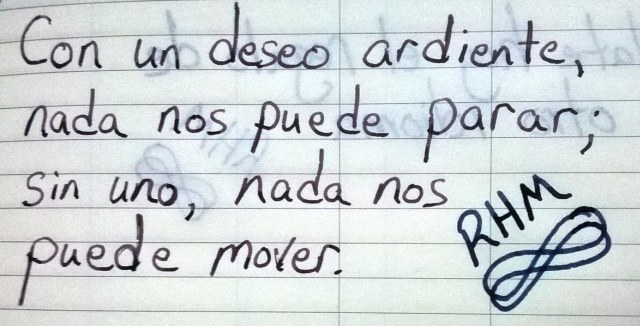 Con un deseo ardiente,
nada nos puede parar;
sin uno, nada nos
puede mover.
RHM